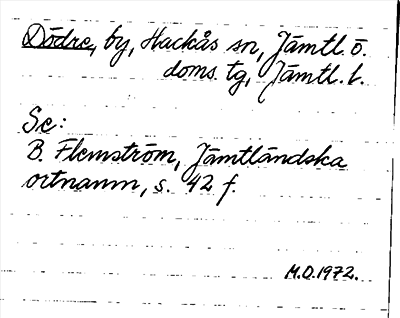 Dödre, by, Hackås sn, Jämtl. ö.
doms. tg, Jämtl. l.
Se:
B. Flemström, Jämtländska
ortnamn, s. 42 f.
M.O.1972.